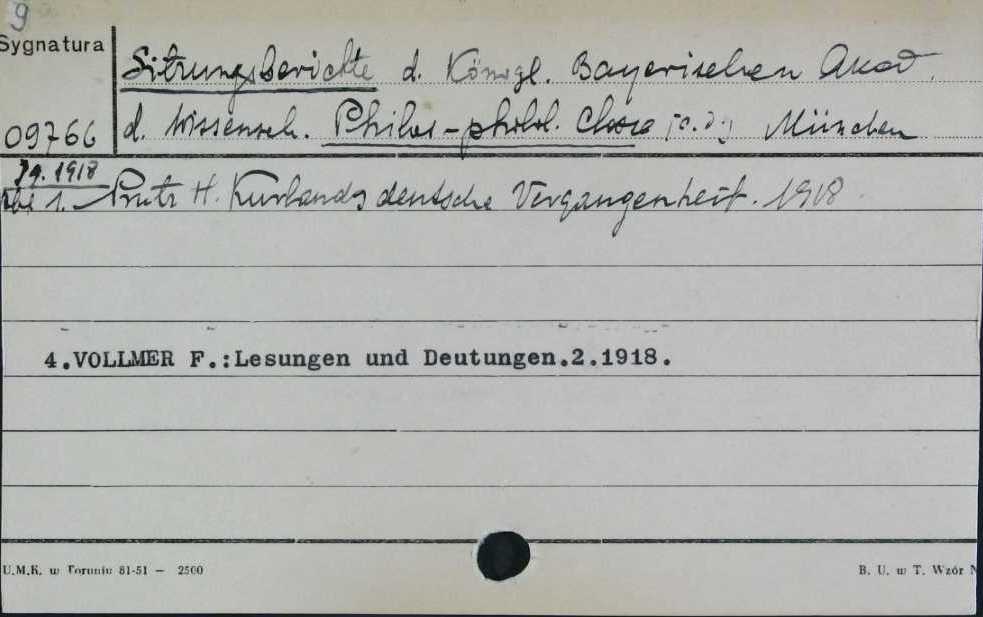 9
Sygnatura
Sitzungsberichte d. Königl. Bayerischen Akad.
09766
d. Wissensch. Philos-philol. Classe [c.d.] München
Jg. 1918
Abh 1. Prutz H. Kurlands deutsche Vergangenheit. 1918.
4.VOLLMER F.:Lesungen und Deutungen.2.1918.
U.M.K. w Toruniu 81-51 — 2500
B. U. w T. Wzór N